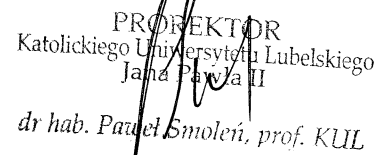 PROREKTOR
Katolickiego Uniwersytetu Lubelskiego
Jana Pawła II
dr hab. Paweł Smoleń, prof. KUL